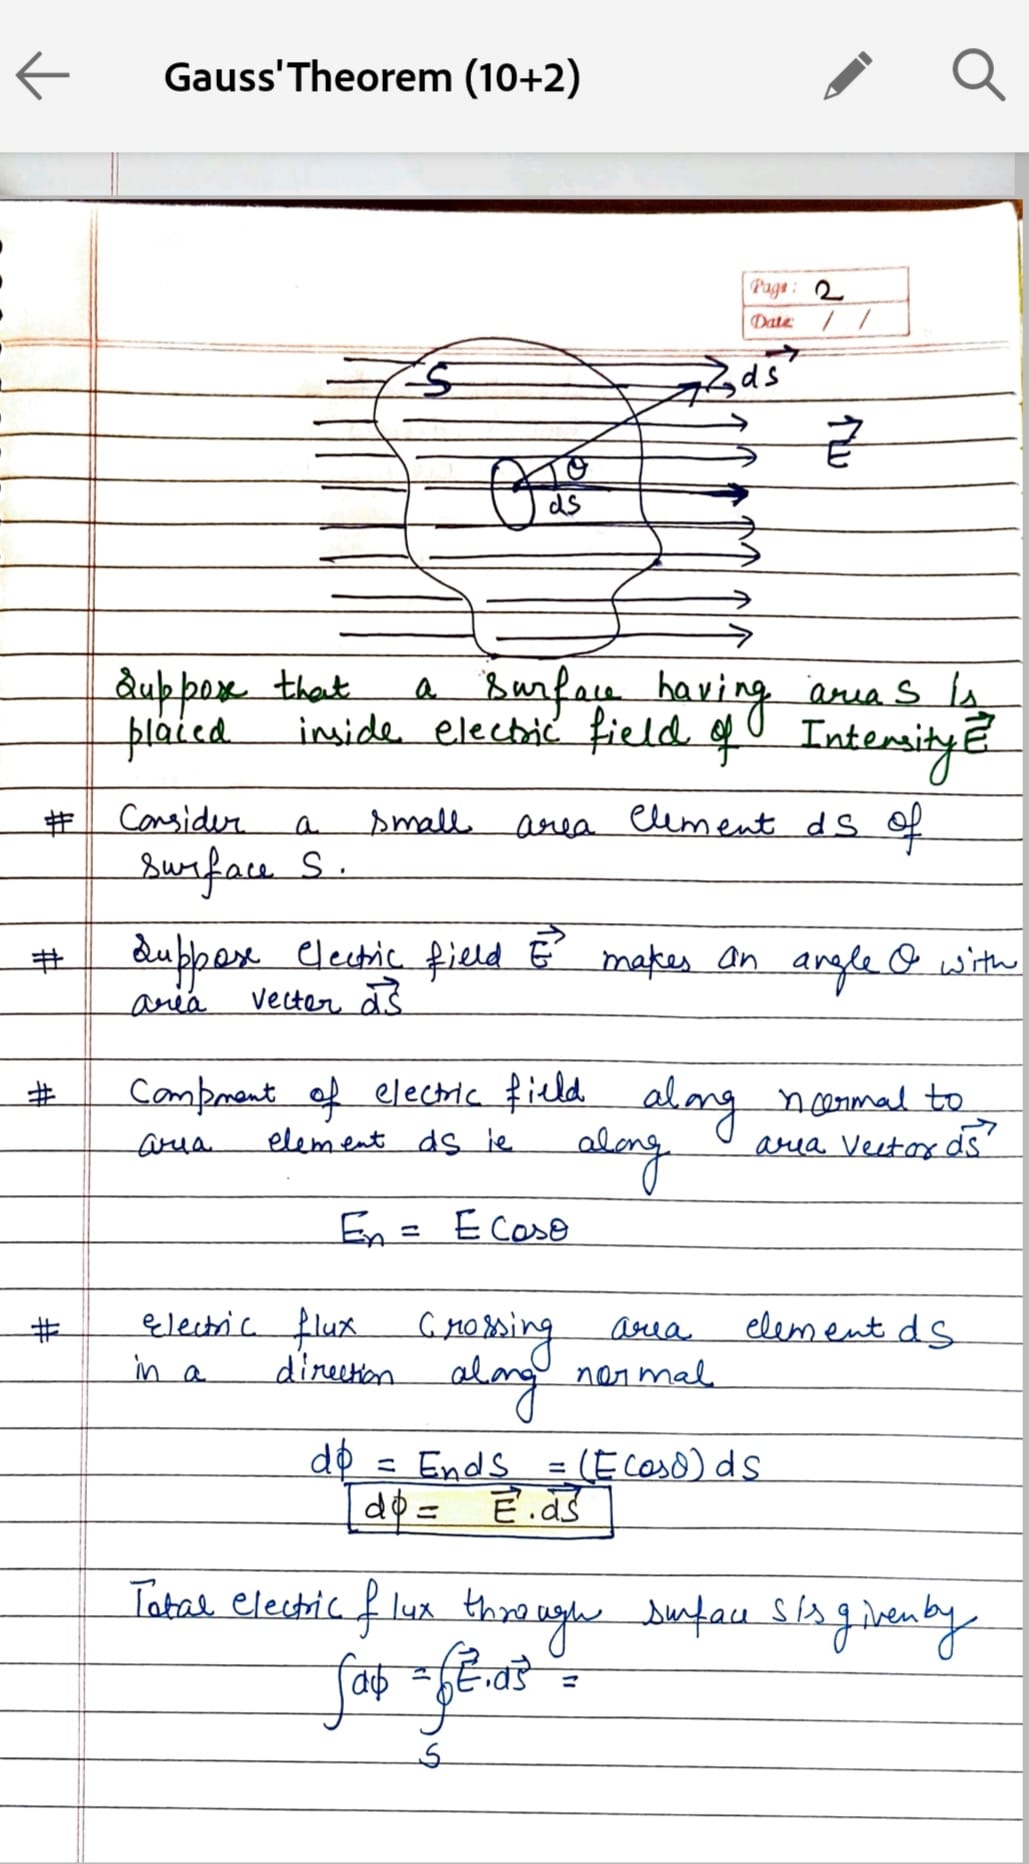 Gauss'Theorem (10+2)
Page: 2
Date / /
S
ds⃗
E⃗
θ
ds
Suppose that a surface having area S is
placed inside electric field of Intensity E⃗
# Consider a small area element ds of
surface S.
# Suppose electric field E⃗ makes an angle θ with
area vector ds⃗
# Component of electric field along normal to
area element ds ie along area vector ds⃗
En = E Cosθ
# Electric flux Crossing area element ds
in a direction along normal
dϕ = En ds = (E Cosθ) ds
dϕ = E⃗ . ds⃗
Total electric flux through surface S is given by
∫dϕ = ∮E⃗.ds⃗ =
S